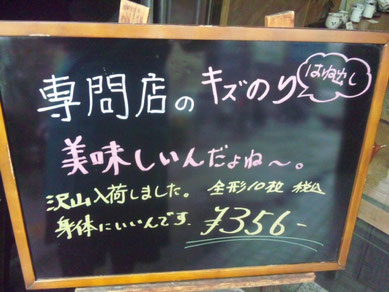 専門店のキズのり
はね出し
美味しいんだよね〜。
沢山入荷しました。 全形10枚 税込
身体にいいんです. ¥356-